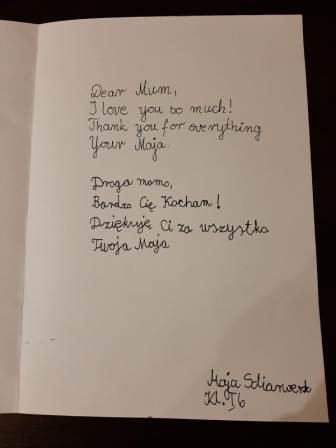 Dear Mum,
I love you so much!
Thank you for everything
Your Maja.
Droga mamo,
Bardzo Cię Kocham!
Dziękuję Ci za wszystko
Twoja Maja
Maja
Kl. I b